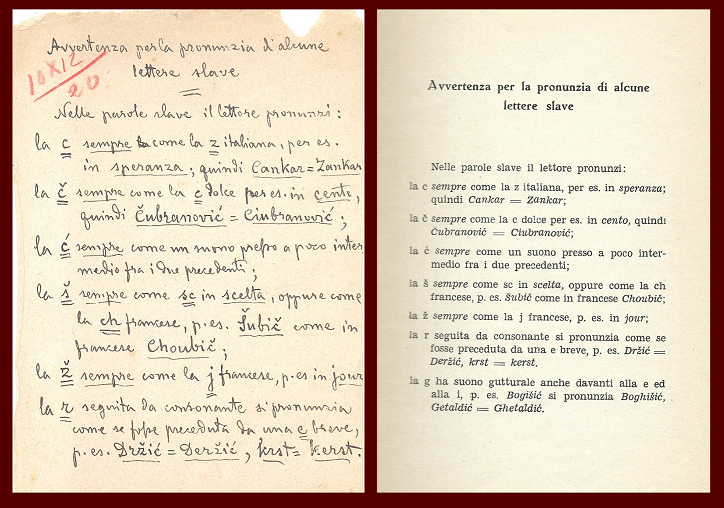 Avvertenza per la pronunzia d'alcune
lettere slave
10 XII
20
Nelle parole slave il lettore pronunzi:
la c sempre come la z italiana, per es.
in speranza; quindi Cankar=Zankar
la č sempre come la c dolce per es. in cento,
quindi Čubranović = Ciubranović;
la ć sempre come un suono presso a poco inter
medio fra i due precedenti;
la š sempre come sc in scelta, oppure come
la ch francese, p. es. Šubič come in
francese Choubič;
la ž sempre come la j francese, p. es in jour
la r seguita da consonante si pronunzia
come se fosse preceduta da una e breve,
p. es. Držić = Deržić, krst = kerst.
Avvertenza per la pronunzia di alcune
lettere slave
Nelle parole slave il lettore pronunzi:
la c sempre come la z italiana, per es. in speranza;
quindi Cankar = Zankar;
la č sempre come la c dolce per es. in cento, quindi
Čubranović = Ciubranović;
la ć sempre come un suono presso a poco inter-
medio fra i due precedenti;
la š sempre come sc in scelta, oppure come la ch
francese, p. es. Šubič come in francese Choubič;
la ž sempre come la j francese, p. es. in jour;
la r seguita da consonante si pronunzia come se
fosse preceduta da una e breve, p. es. Držić =
Deržić, krst = kerst.
la g ha suono gutturale anche davanti alla e ed
alla i, p. es. Bogišić si pronunzia Boghišić,
Getaldić = Ghetaldić.